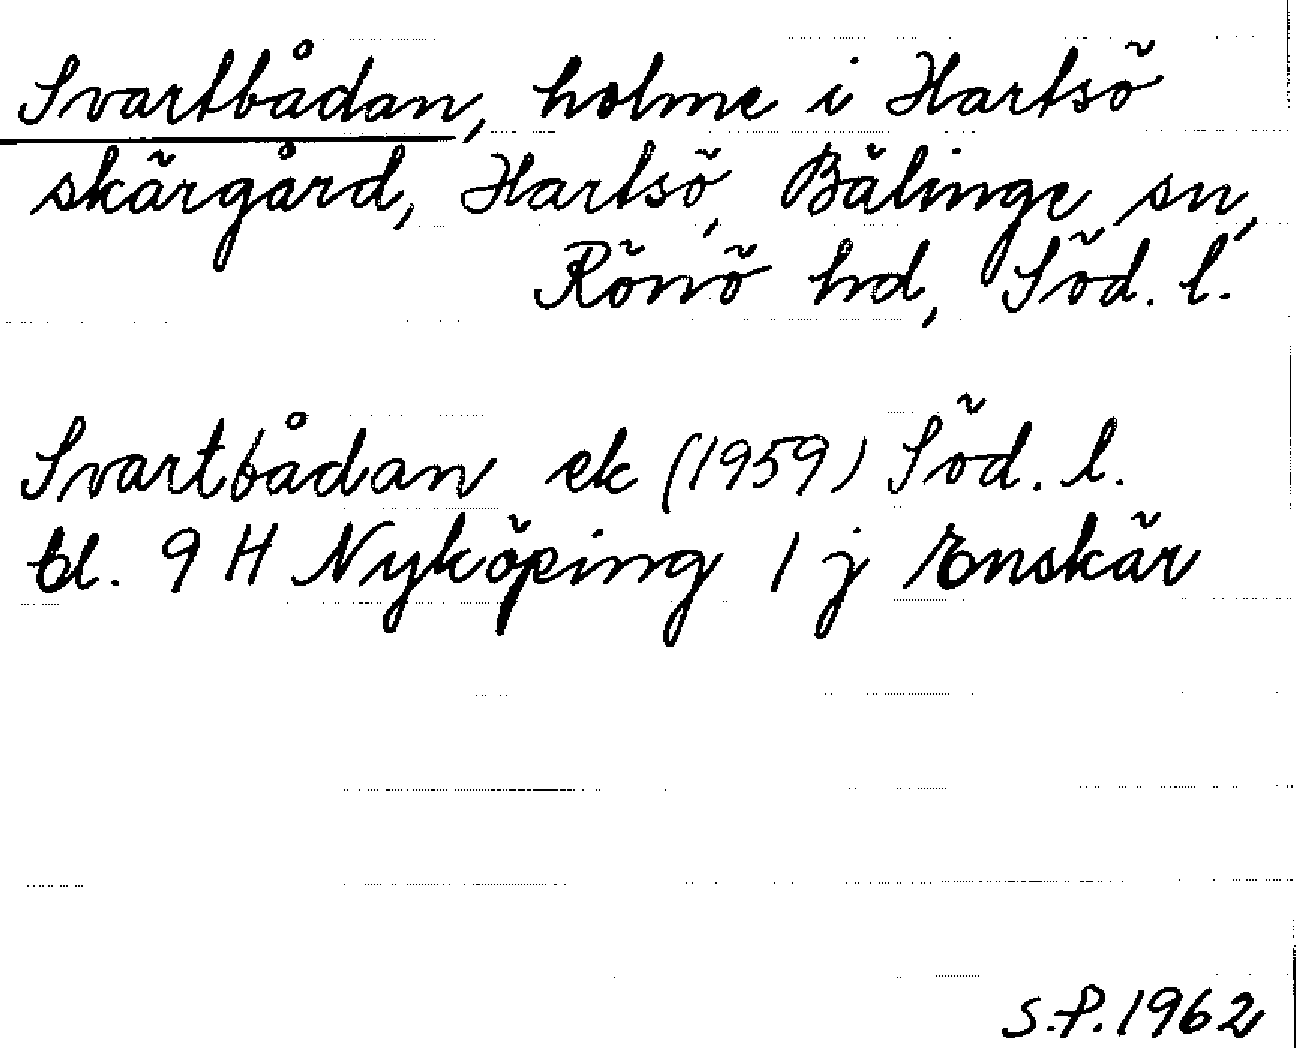 Svartbådan, holme i Hartsö
skärgård, Hartsö, Bälinge sn,
Rönö hd, Söd. l.
Svartbådan ek (1959) Söd. l.
bl. 9 H Nyköping 1 j Enskär
S.P. 1962